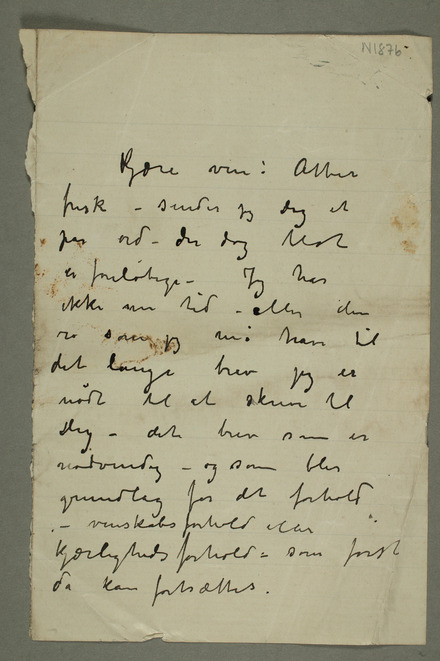 N1876
Kjære ven! Atter
frisk – sender jeg Dig et
par ord – der dog blot
er foreløbige – Jeg har
ikke nu tid – eller den
ro som jeg må have til
det lange brev jeg er
nødt til at skrive til
Dig – det brev som er
nødvendig – og som blir
grundlag for det forhold
– venskabsforhold eller
kjærlighedsforhold – som først
da kan fortsættes.